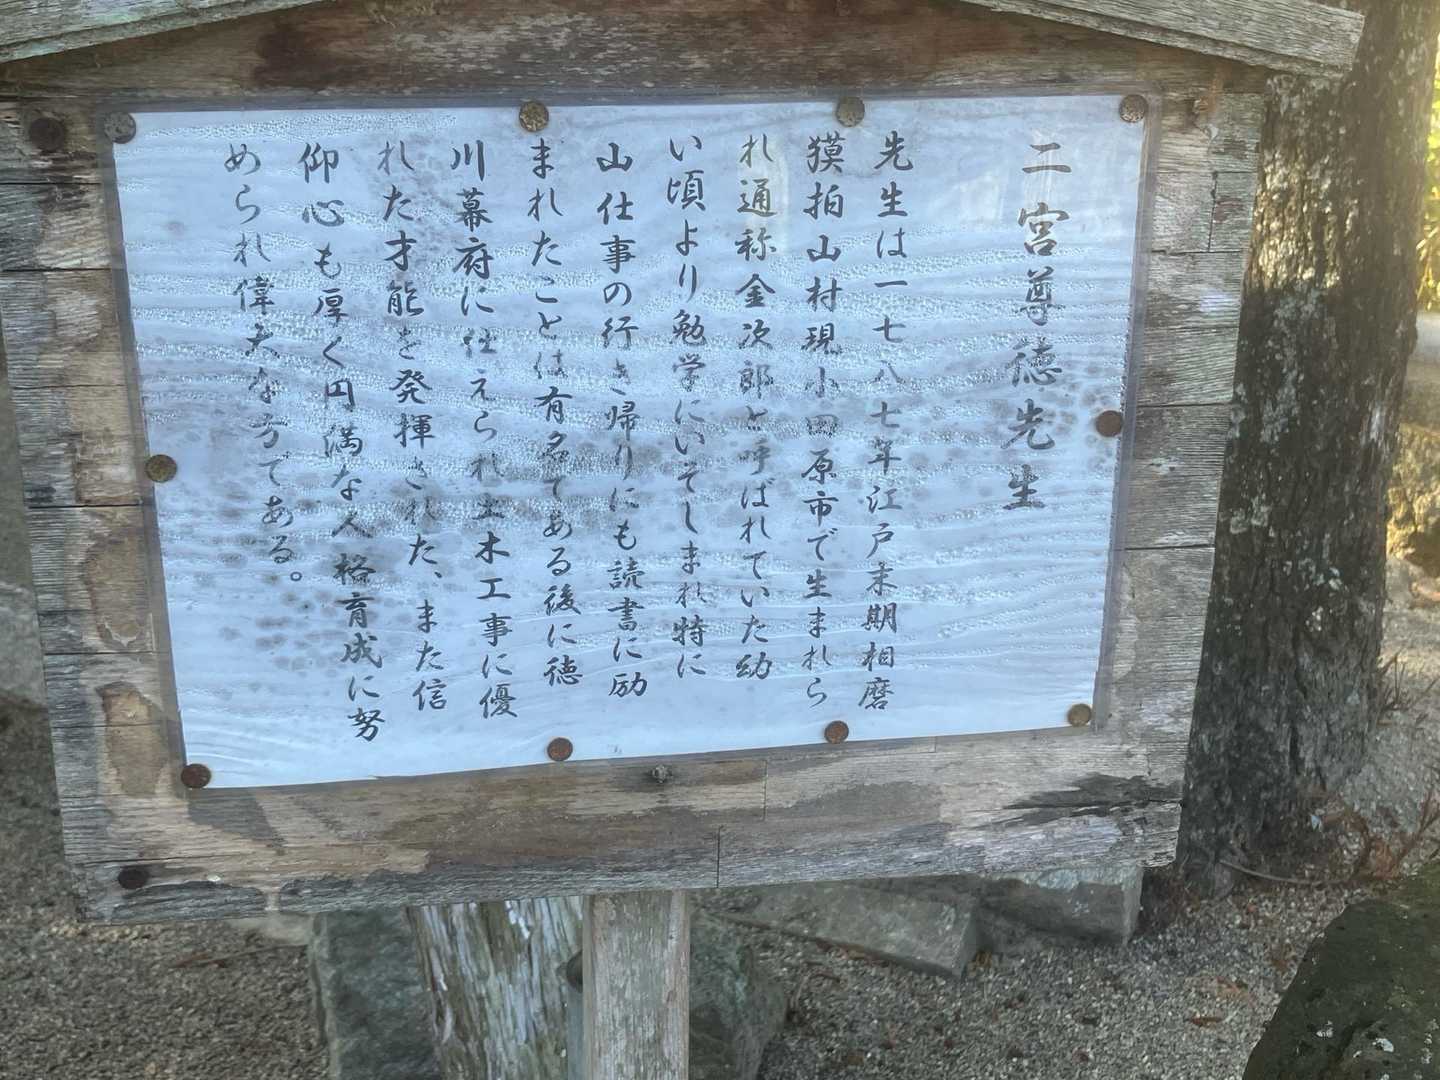 二宮尊徳先生
先生は一七八七年江戸末期相磨
獏拍山村現小田原市で生まれら
れ通称金次郎と呼ばれていた幼
い頃より勉学にいそしまれ特に
山仕事の行き帰りにも読書に励
まれたことは有名である後に徳
川幕府に仕えられ土木工事に優
れた才能を発揮された、また信
仰心も厚く円満な人格育成に努
められ偉大な方である。